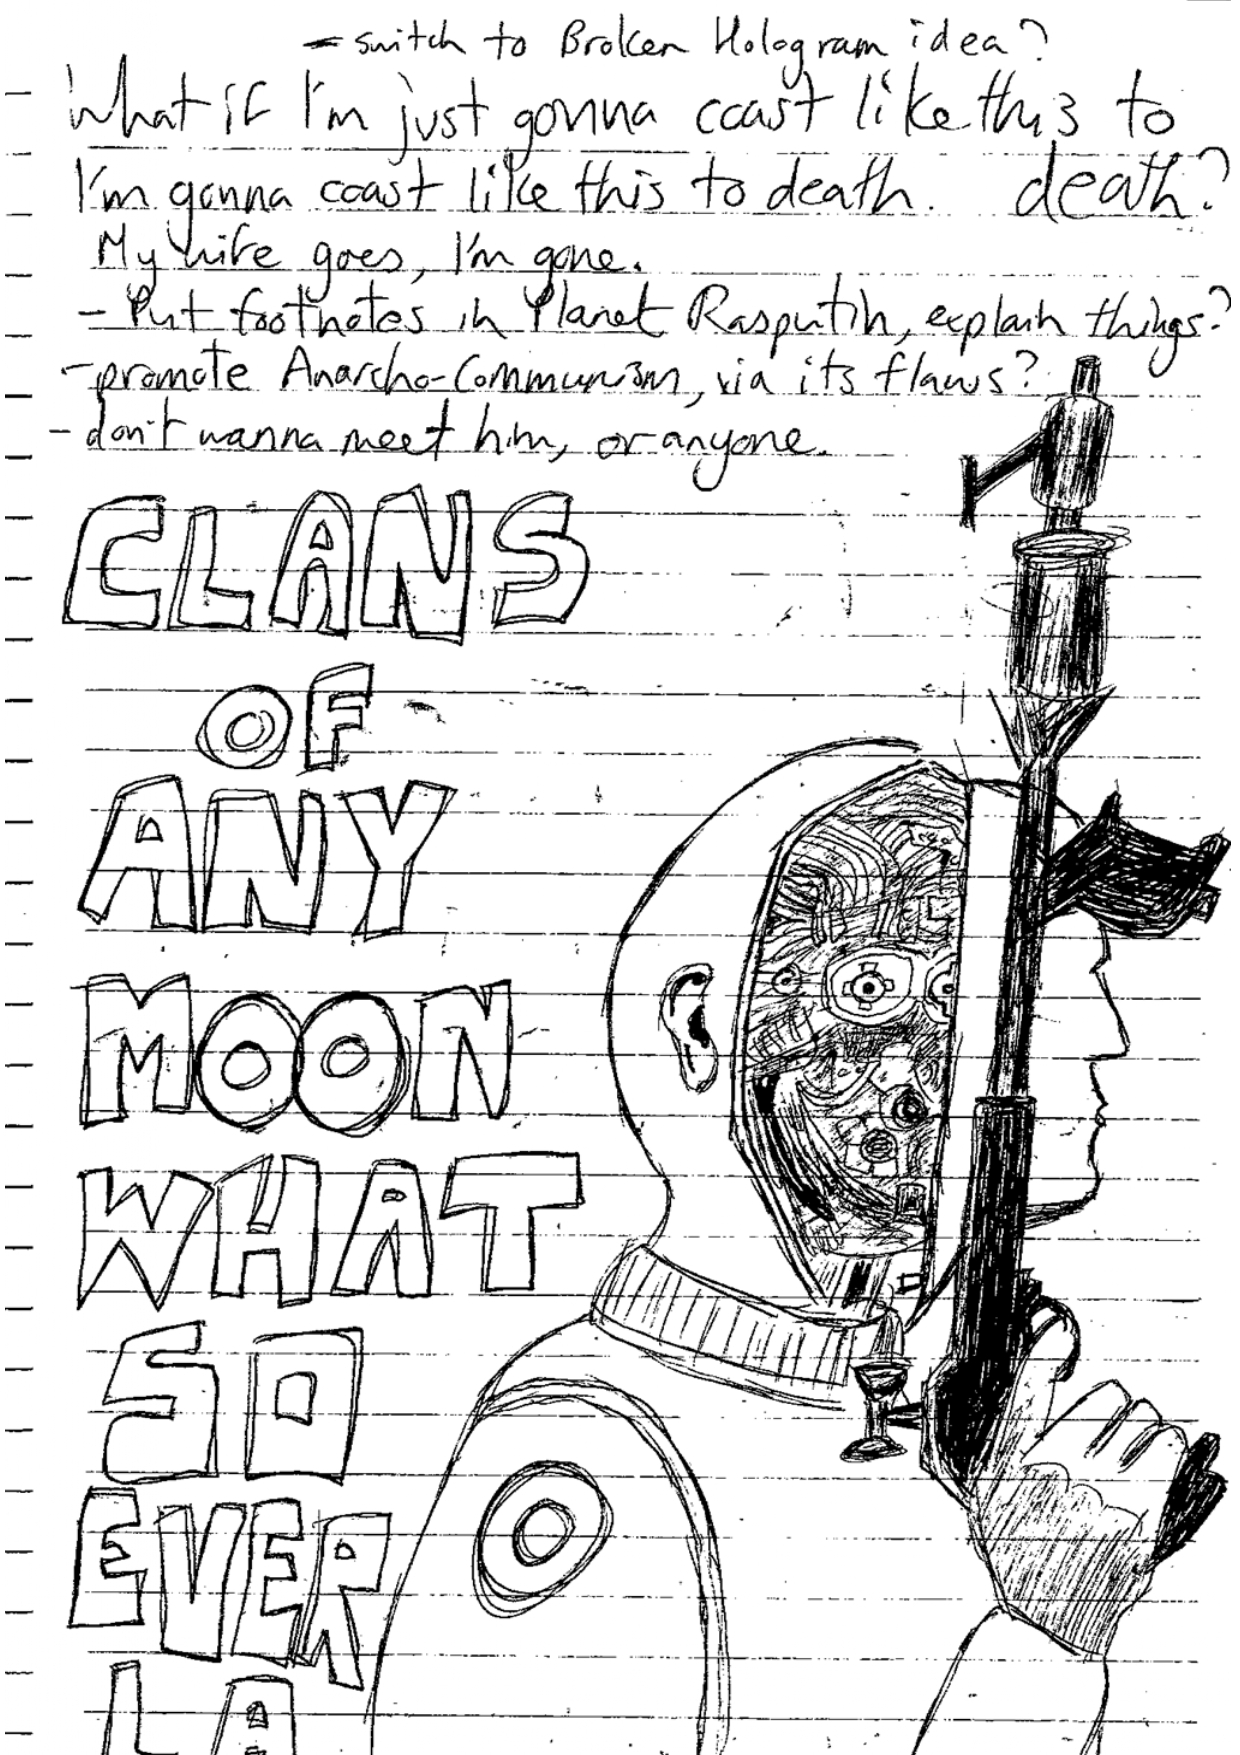 - switch to Broken Hologram idea?
What if I'm just gonna coast like this to
death?
I'm gonna coast like this to death.
My wife goes, I'm gone.
- Put footnotes in Planet Rasputin, explain things?
- promote Anarcho-Communism, via its flaws?
- don't wanna meet him, or anyone.
CLANS
OF
ANY
MOON
WHAT
SO
EVER
LA